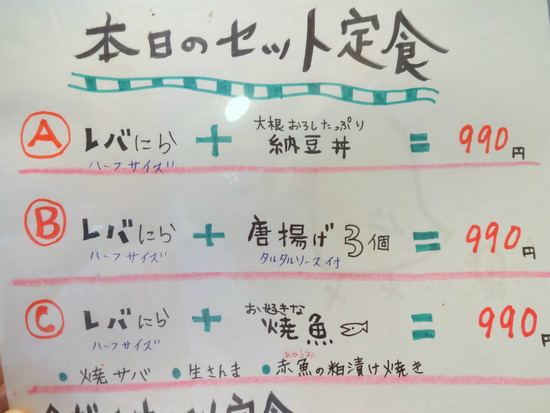 本日のセット定食
Ⓐ レバにら + 大根おろしたっぷり 納豆丼 = 990円
ハーフサイズ
Ⓑ レバにら + 唐揚げ3個 = 990円
ハーフサイズ タルタルソース付
Ⓒ レバにら + お好きな 焼魚 = 990円
ハーフサイズ
あかうお
・焼サバ ・生さんま ・赤魚の粕漬け焼き